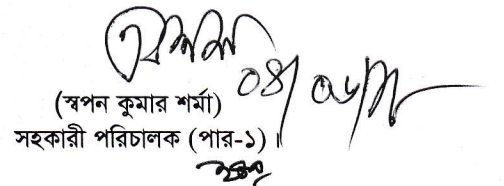 ০৪/০৬/
(স্বপন কুমার শর্মা)
সহকারী পরিচালক (পার-১)।